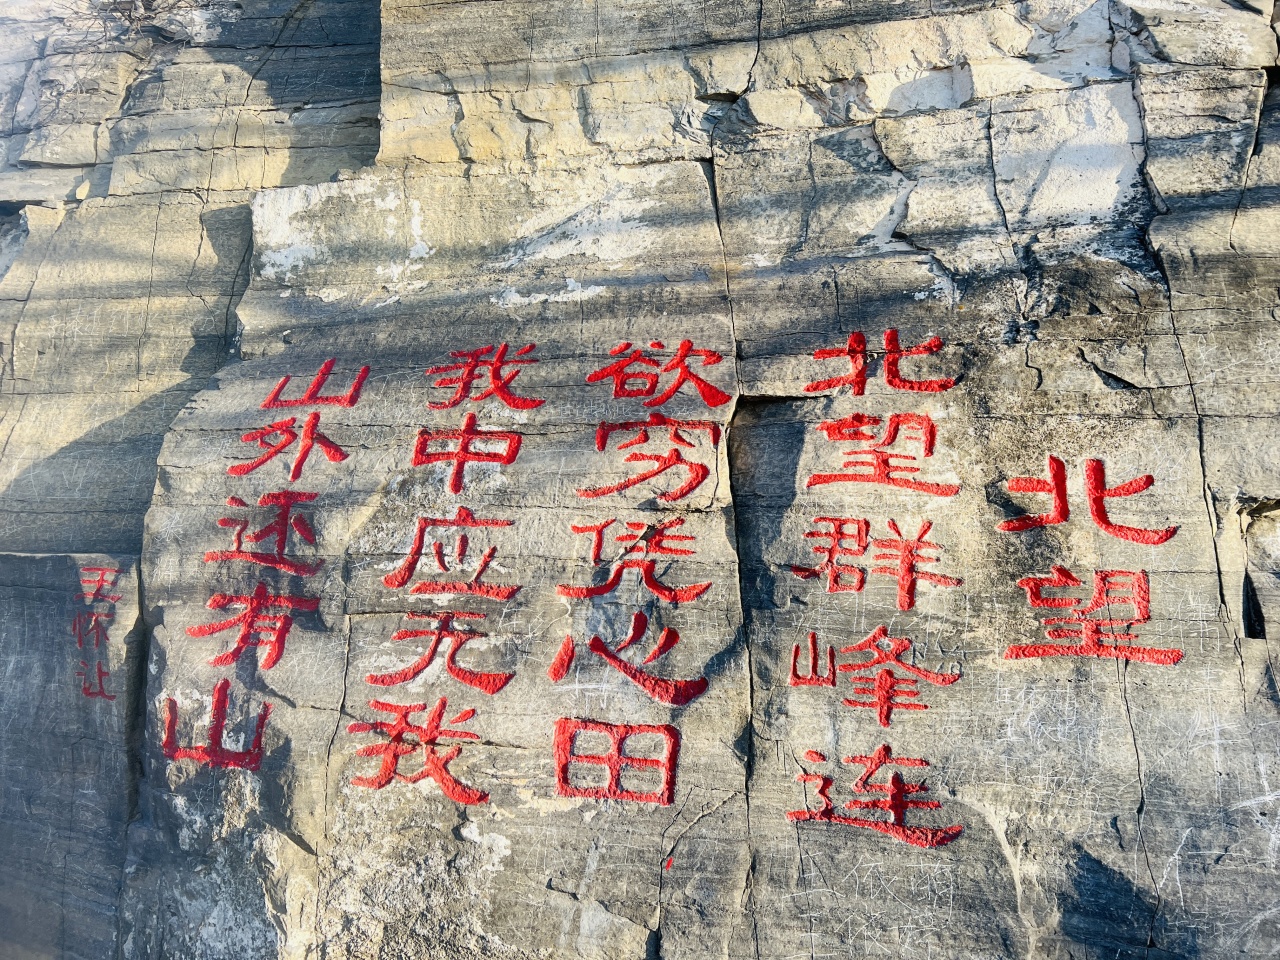 北望
北望群峰连
欲穷凭心田
我中应无我
山外还有山
王怀让